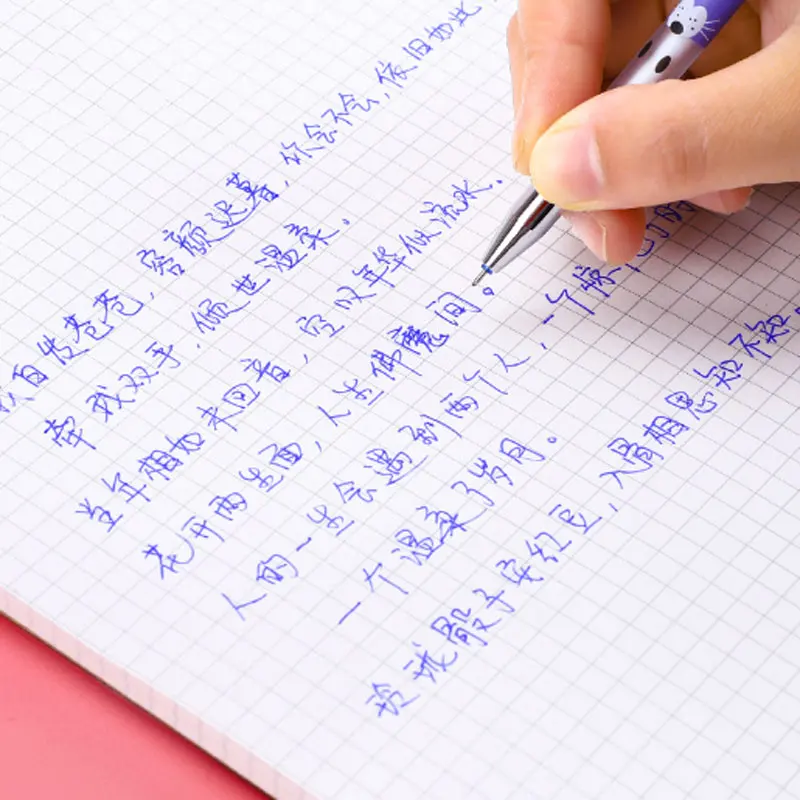 我白发苍苍，容颜迟暮，你会不会，依旧如此
牵我双手，倾世温柔。
当年相如未回音，空叹年华似流水。
花开两生面，人生佛魔间。
人的一生会遇到两个人，一个惊
一个温柔了岁月。
玲珑骰子安红豆，入骨相思知不知